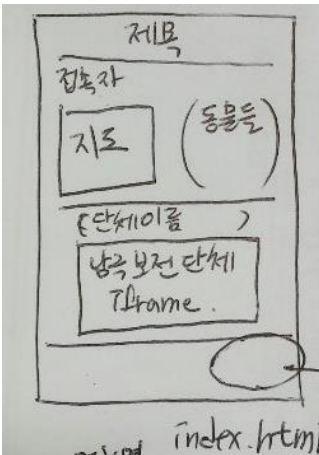 제목
접속자
지도
(동물들)
(단체이름 )
남극보전단체
Iframe.
index.html